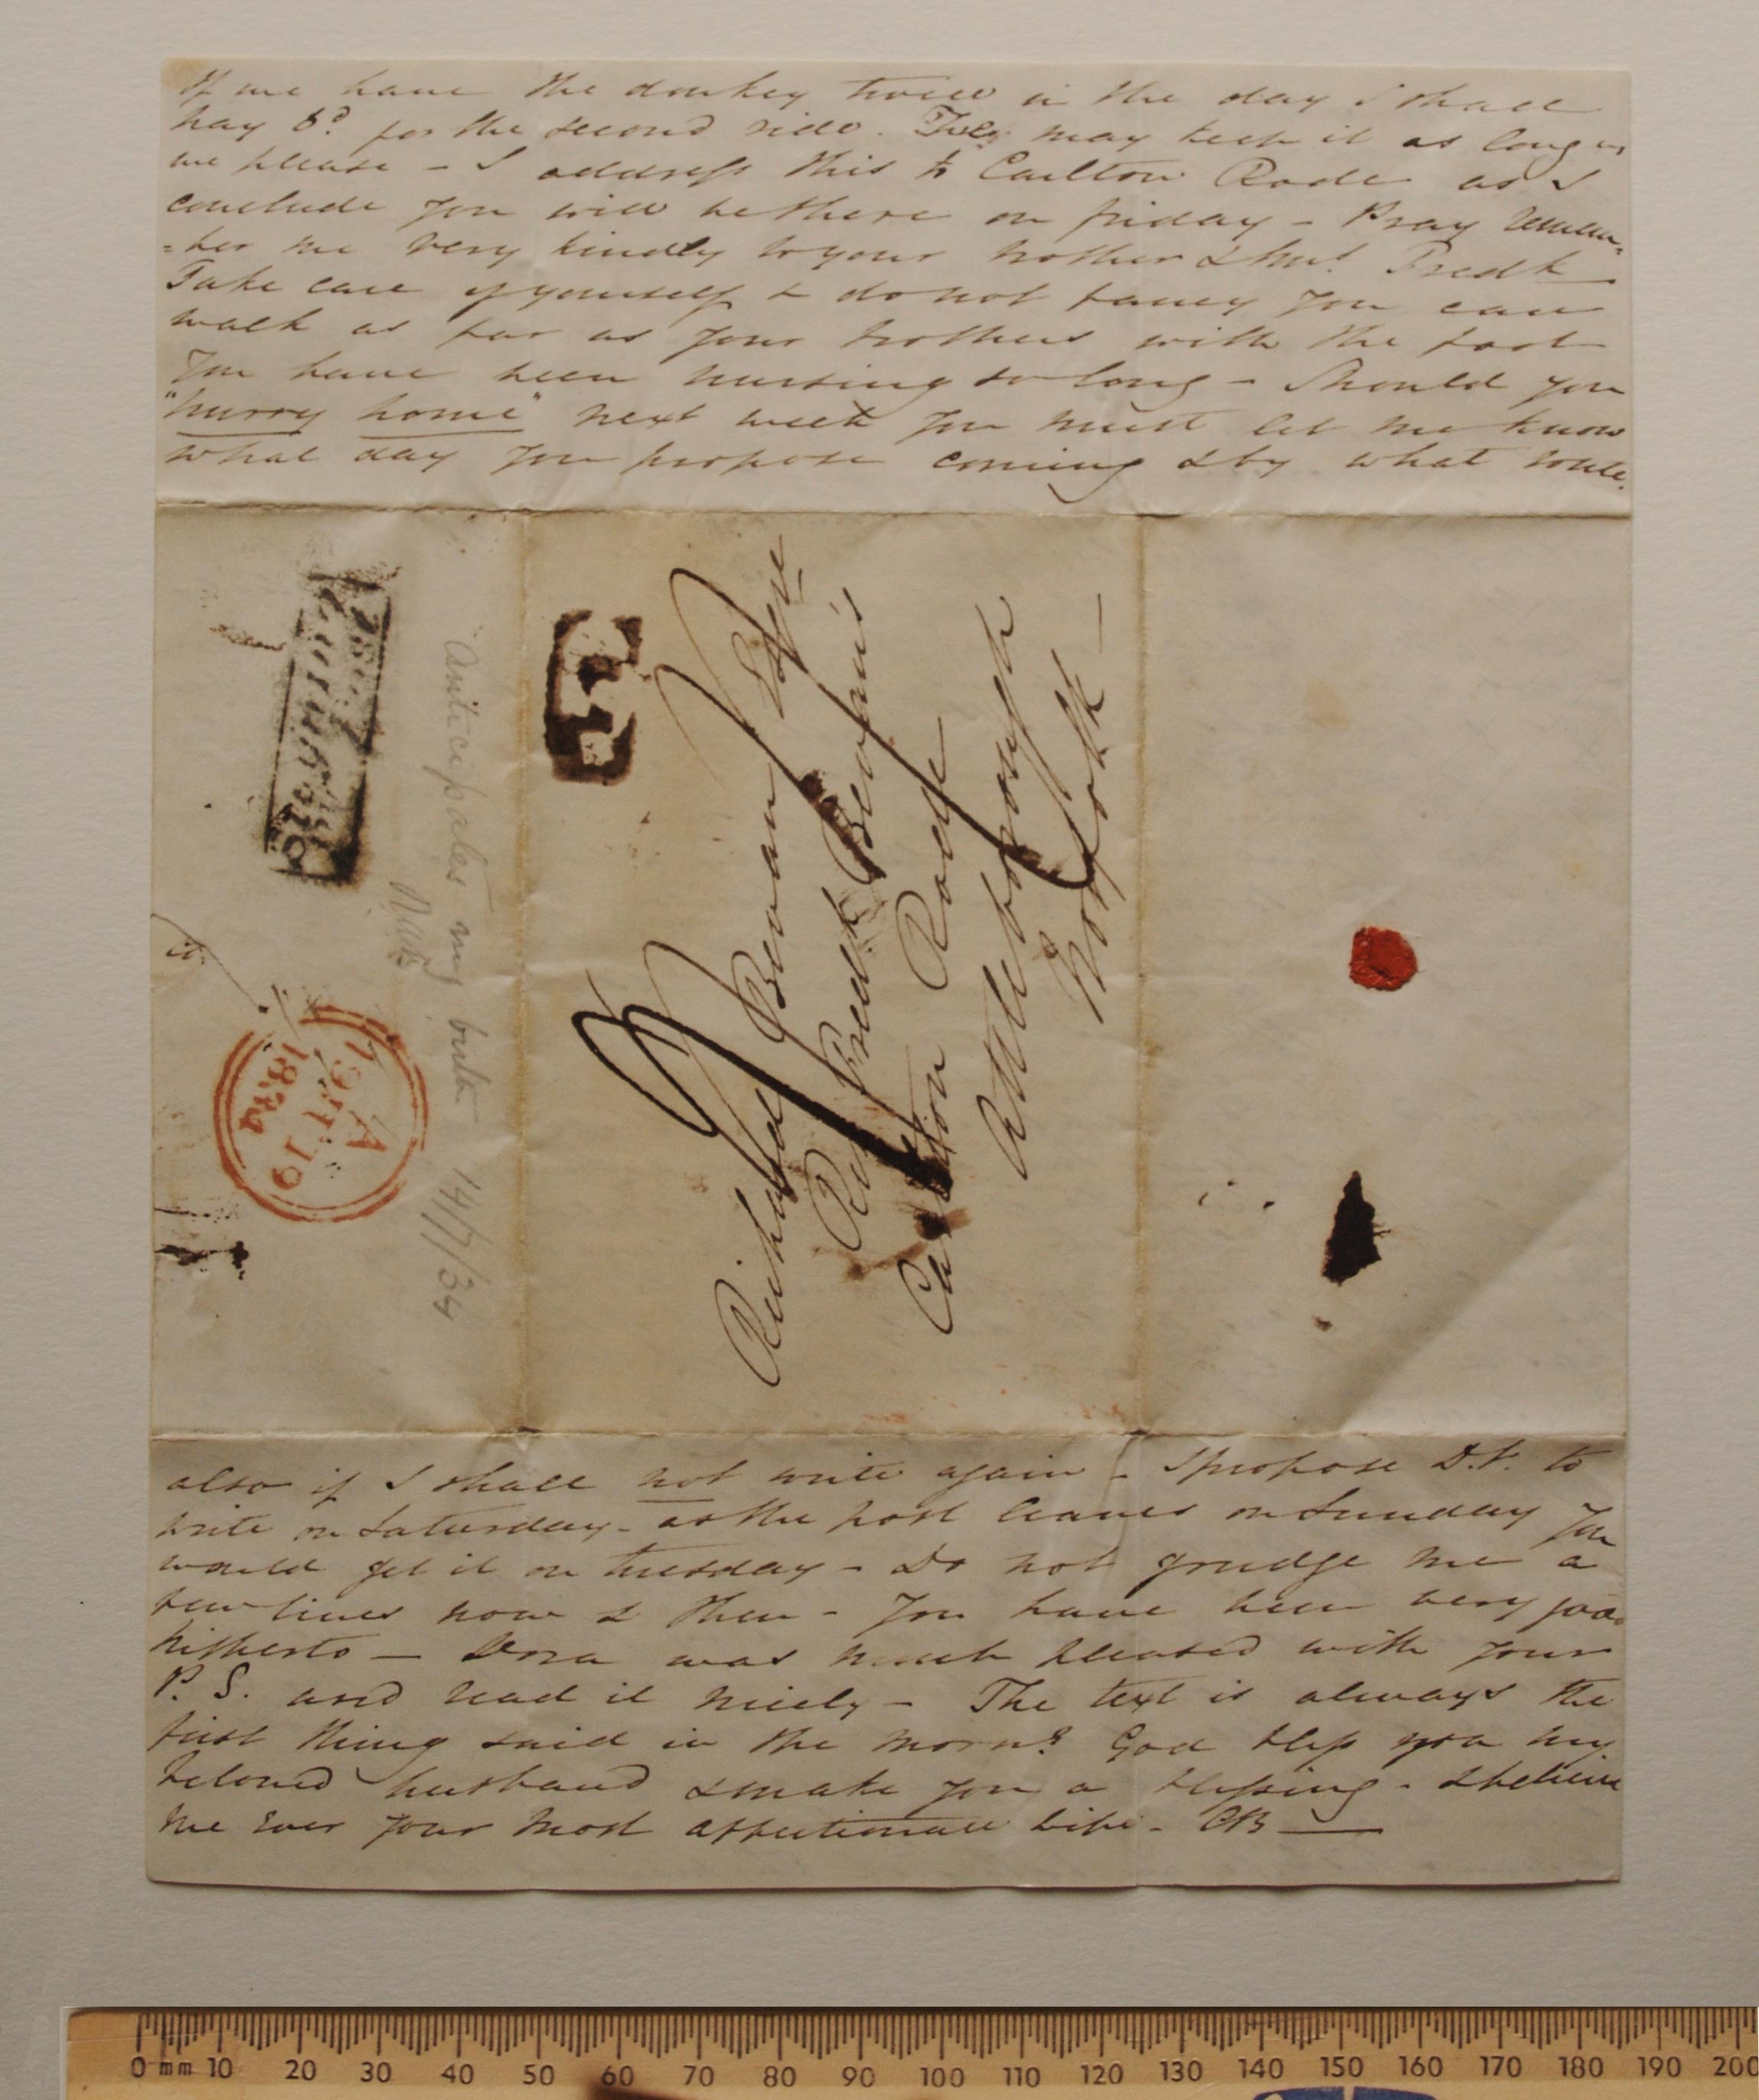 If we have the donkey twice in the day I shall
pay 6d for the second ride. We may keep it as long as
we please - I address this to Carlton Rode as I
conclude you will be there on friday - Pray remem-
=ber me very kindly to your brother & Mrs. Fredk
Take care of yourself & do not fancy you can
walk as far as your brothers with the foot
you have been nursing so long - Should you
"hurry home" next week you must let me know
what day you propose coming & by what route.
Anticipates my birth 14/7/34
A
19 JY 19
1834
Richard Bevan Esqre
Revd Fredk Bevan's
Carlton Rode
Attleborough
Norfolk -
also if I shall not write again - I propose D.V. to
write on Saturday - as the post leaves on Sunday you
would get it on Tuesday - Do not grudge me a
few lines now & then - You have been very good
hitherto - Dora was much pleased with your
P.S. and read it nicely - The text is always the
first thing said in the morng. God bless you my
beloved husband & make you a blessing - & believe
me ever your most affectionate wife - CB
0 mm 10 20 30 40 50 60 70 80 90 100 110 120 130 140 150 160 170 180 190 200